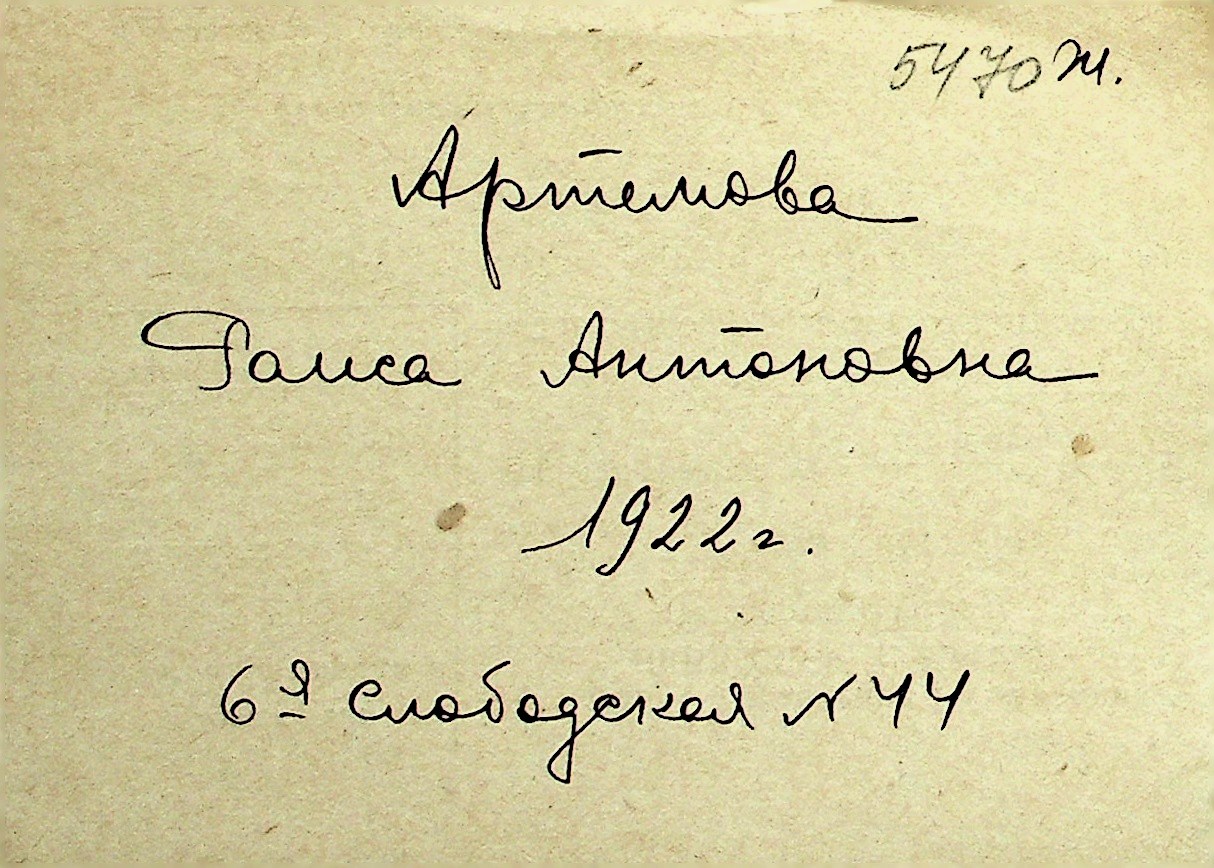 5470 ж.
Артемова
Раиса Антоновна
1922 г.
6я Слободская N 44